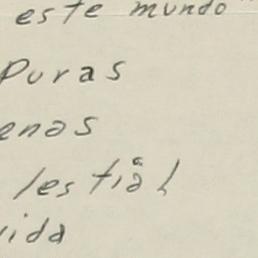 este mundo"
puras
enas
lestiål
vida